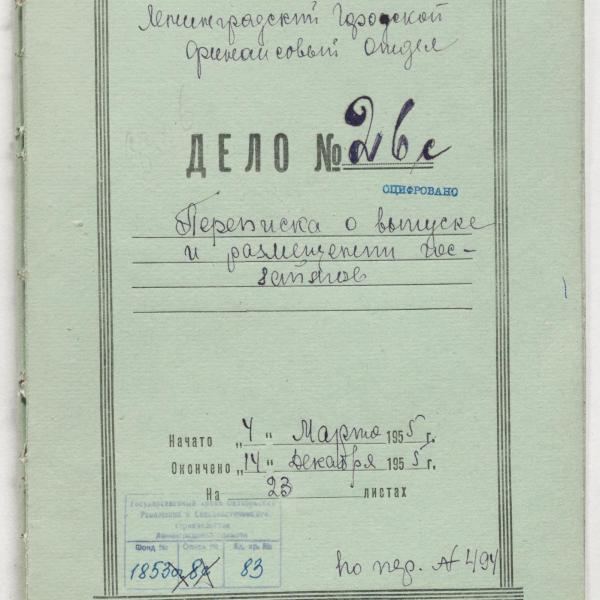 Ленинградский Городской
Финансовый отдел
ДЕЛО № 26с
ОЦИФРОВАНО
Переписка о выпуске
и размещении гос-
займов
Начато „4“ Марта 1955 г.
Окончено „14“ Декабря 1955 г.
На 23 листах
Государственный архив Октябрьской
Революции и Социалистического
строительства
Ленинградской области
Фонд № Опись № Ед. хр. №
1853 8 83
по пер. № 494